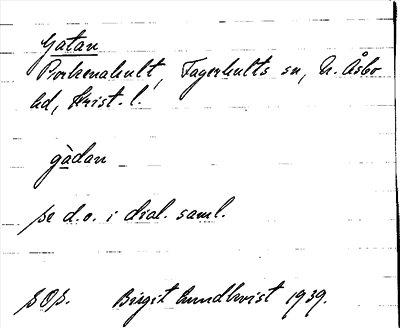 Gatan
Porkenahult, Fagerhults sn, N. Åsbo
hd, Krist. l.
gàdan
se d.o. i dial. saml.
SOS. Birgit Sundkvist 1939.